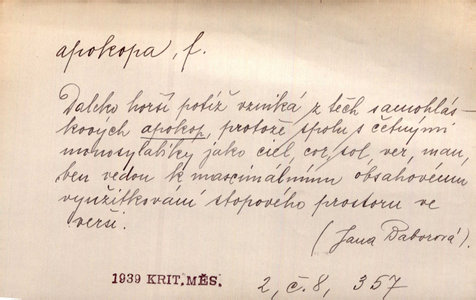 apokopa, f.
Daleko horší potíž vzniká z těch samohlás-
kových apokop, protože spolu s četnými
monosylabiky jako ciel, cor, sol, ver, man,
ben vedou k maximálnímu obsahovému
využitkování stopového prostoru ve
verši.
(Jana Baborová).
1939 KRIT. MĚS. 2, č. 8, 357